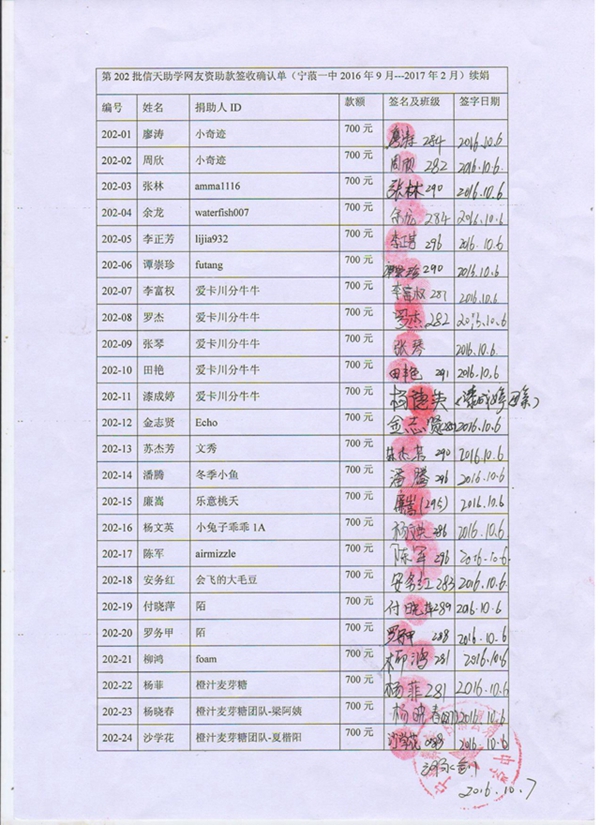 第 202 批信天助学网友资助款签收确认单（宁蒗一中 2016 年 9 月---2017 年 2 月）续娟
编号 姓名 捐助人 ID 款额 签名及班级 签字日期
202-01 廖涛 小奇迹 700 元 廖涛 284 2016.10.6
202-02 周欣 小奇迹 700 元 周欣 282 2016.10.6
202-03 张林 amma1116 700 元 张林 290 2016.10.6
202-04 余龙 waterfish007 700 元 余龙 284 2016.10.6
202-05 李正芳 lijia932 700 元 李正芳 296 2016.10.6
202-06 谭崇珍 futang 700 元 290 2016.10.6
202-07 李富权 爱卡川分牛牛 700 元 李富权 281 2016.10.6
202-08 罗杰 爱卡川分牛牛 700 元 罗杰 282 2016.10.6
202-09 张琴 爱卡川分牛牛 700 元 张琴 2016.10.6
202-10 田艳 爱卡川分牛牛 700 元 田艳 291 2016.10.6
202-11 漆成婷 爱卡川分牛牛 700 元 杨德英
202-12 金志贤 Echo 700 元 金志贤 2016.10.6
202-13 苏杰芳 文秀 700 元 苏杰芳 290 2016.10.6
202-14 潘腾 冬季小鱼 700 元 潘腾 296 2016.10.6
202-15 廉嵩 乐意桃天 700 元 廉嵩 (295) 2016.10.6
202-16 杨文英 小兔子乖乖 1A 700 元 杨文英 286 2016.10.6
202-17 陈军 airmizzle 700 元 陈军 296 2016.10.6
202-18 安务红 会飞的大毛豆 700 元 安务红 283 2016.10.6
202-19 付晓萍 陌 700 元 付晓萍 289 2016.10.6
202-20 罗务甲 陌 700 元 罗务甲 288 2016.10.6
202-21 柳鸿 foam 700 元 柳鸿 281 2016.10.6
202-22 杨菲 橙汁麦芽糖 700 元 杨菲 281 2016.10.6
202-23 杨晓春 橙汁麦芽糖团队-梁阿姨 700 元 杨晓春 2016.10.6
202-24 沙学花 橙汁麦芽糖团队-夏楷阳 700 元 沙学花 2016.10.6
2016.10.7